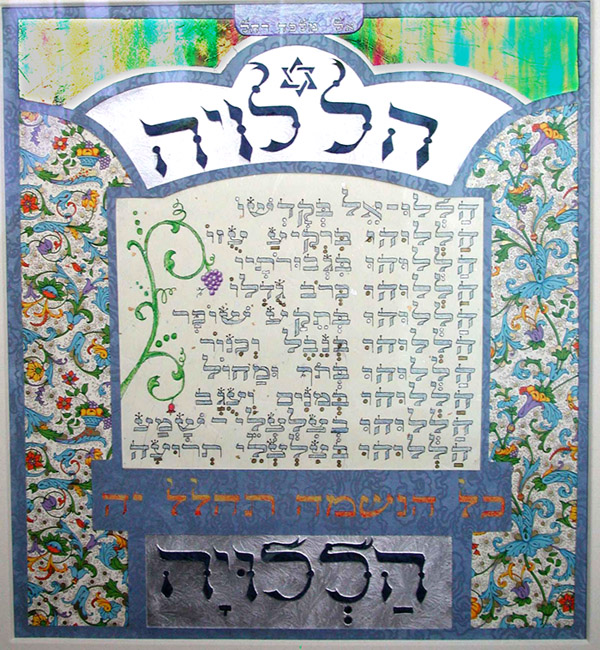 הללויה
הַלְלוּ-אֵל בְּקָדְשׁוֹ
הַלְלוּהוּ בִּרְקִיעַ עֻזּוֹ
הַלְלוּהוּ בִגְבוּרֹתָיו
הַלְלוּהוּ כְּרֹב גֻּדְלוֹ
הַלְלוּהוּ בְּתֵקַע שׁוֹפָר
הַלְלוּהוּ בְּנֵבֶל וְכִנּוֹר
הַלְלוּהוּ בְתֹף וּמָחוֹל
הַלְלוּהוּ בְּמִנִּים וְעֻגָב
הַלְלוּהוּ בְצִלְצְלֵי-שָׁמַע
הַלְלוּהוּ בְּצִלְצְלֵי תְרוּעָה
כל הנשמה תהלל יה
הַלְלוּיָה